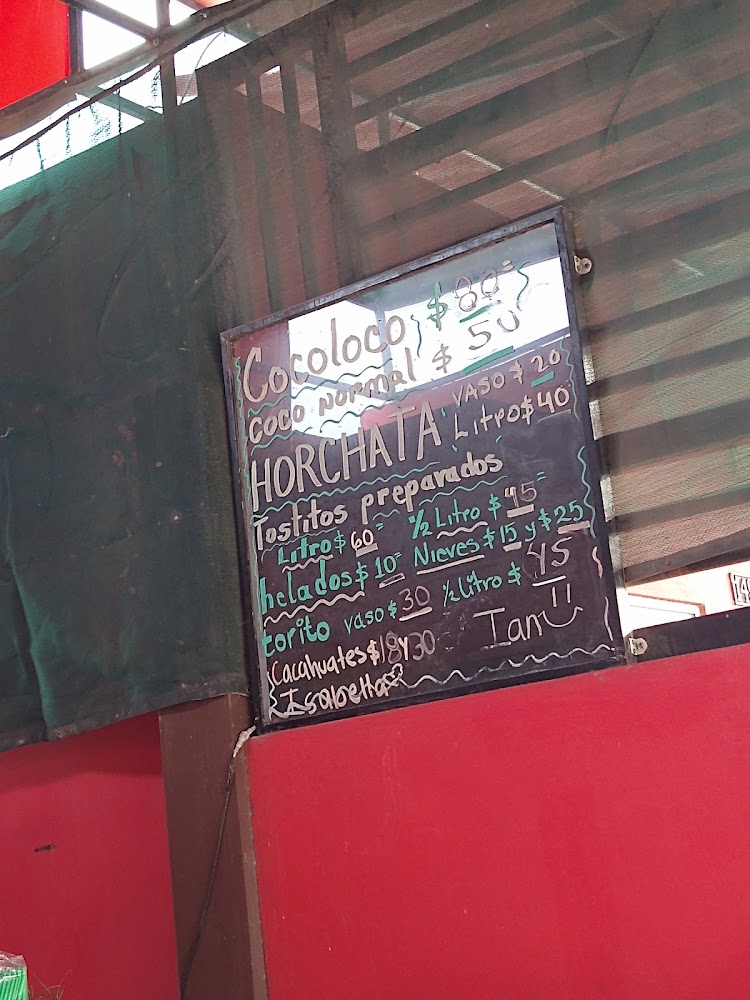 Cocoloco $ 80=
Coco Normal $ 50
HORCHATA VASO $ 20
Litro $ 40
Tostitos preparados
Litro $ 60= 1/2 Litro $ 45=
helados $ 10= Nieves $ 15 y $ 25
torito vaso $ 30 1/2 litro $ 45
Cacahuates $ 18 y 30 Ian
Isabella